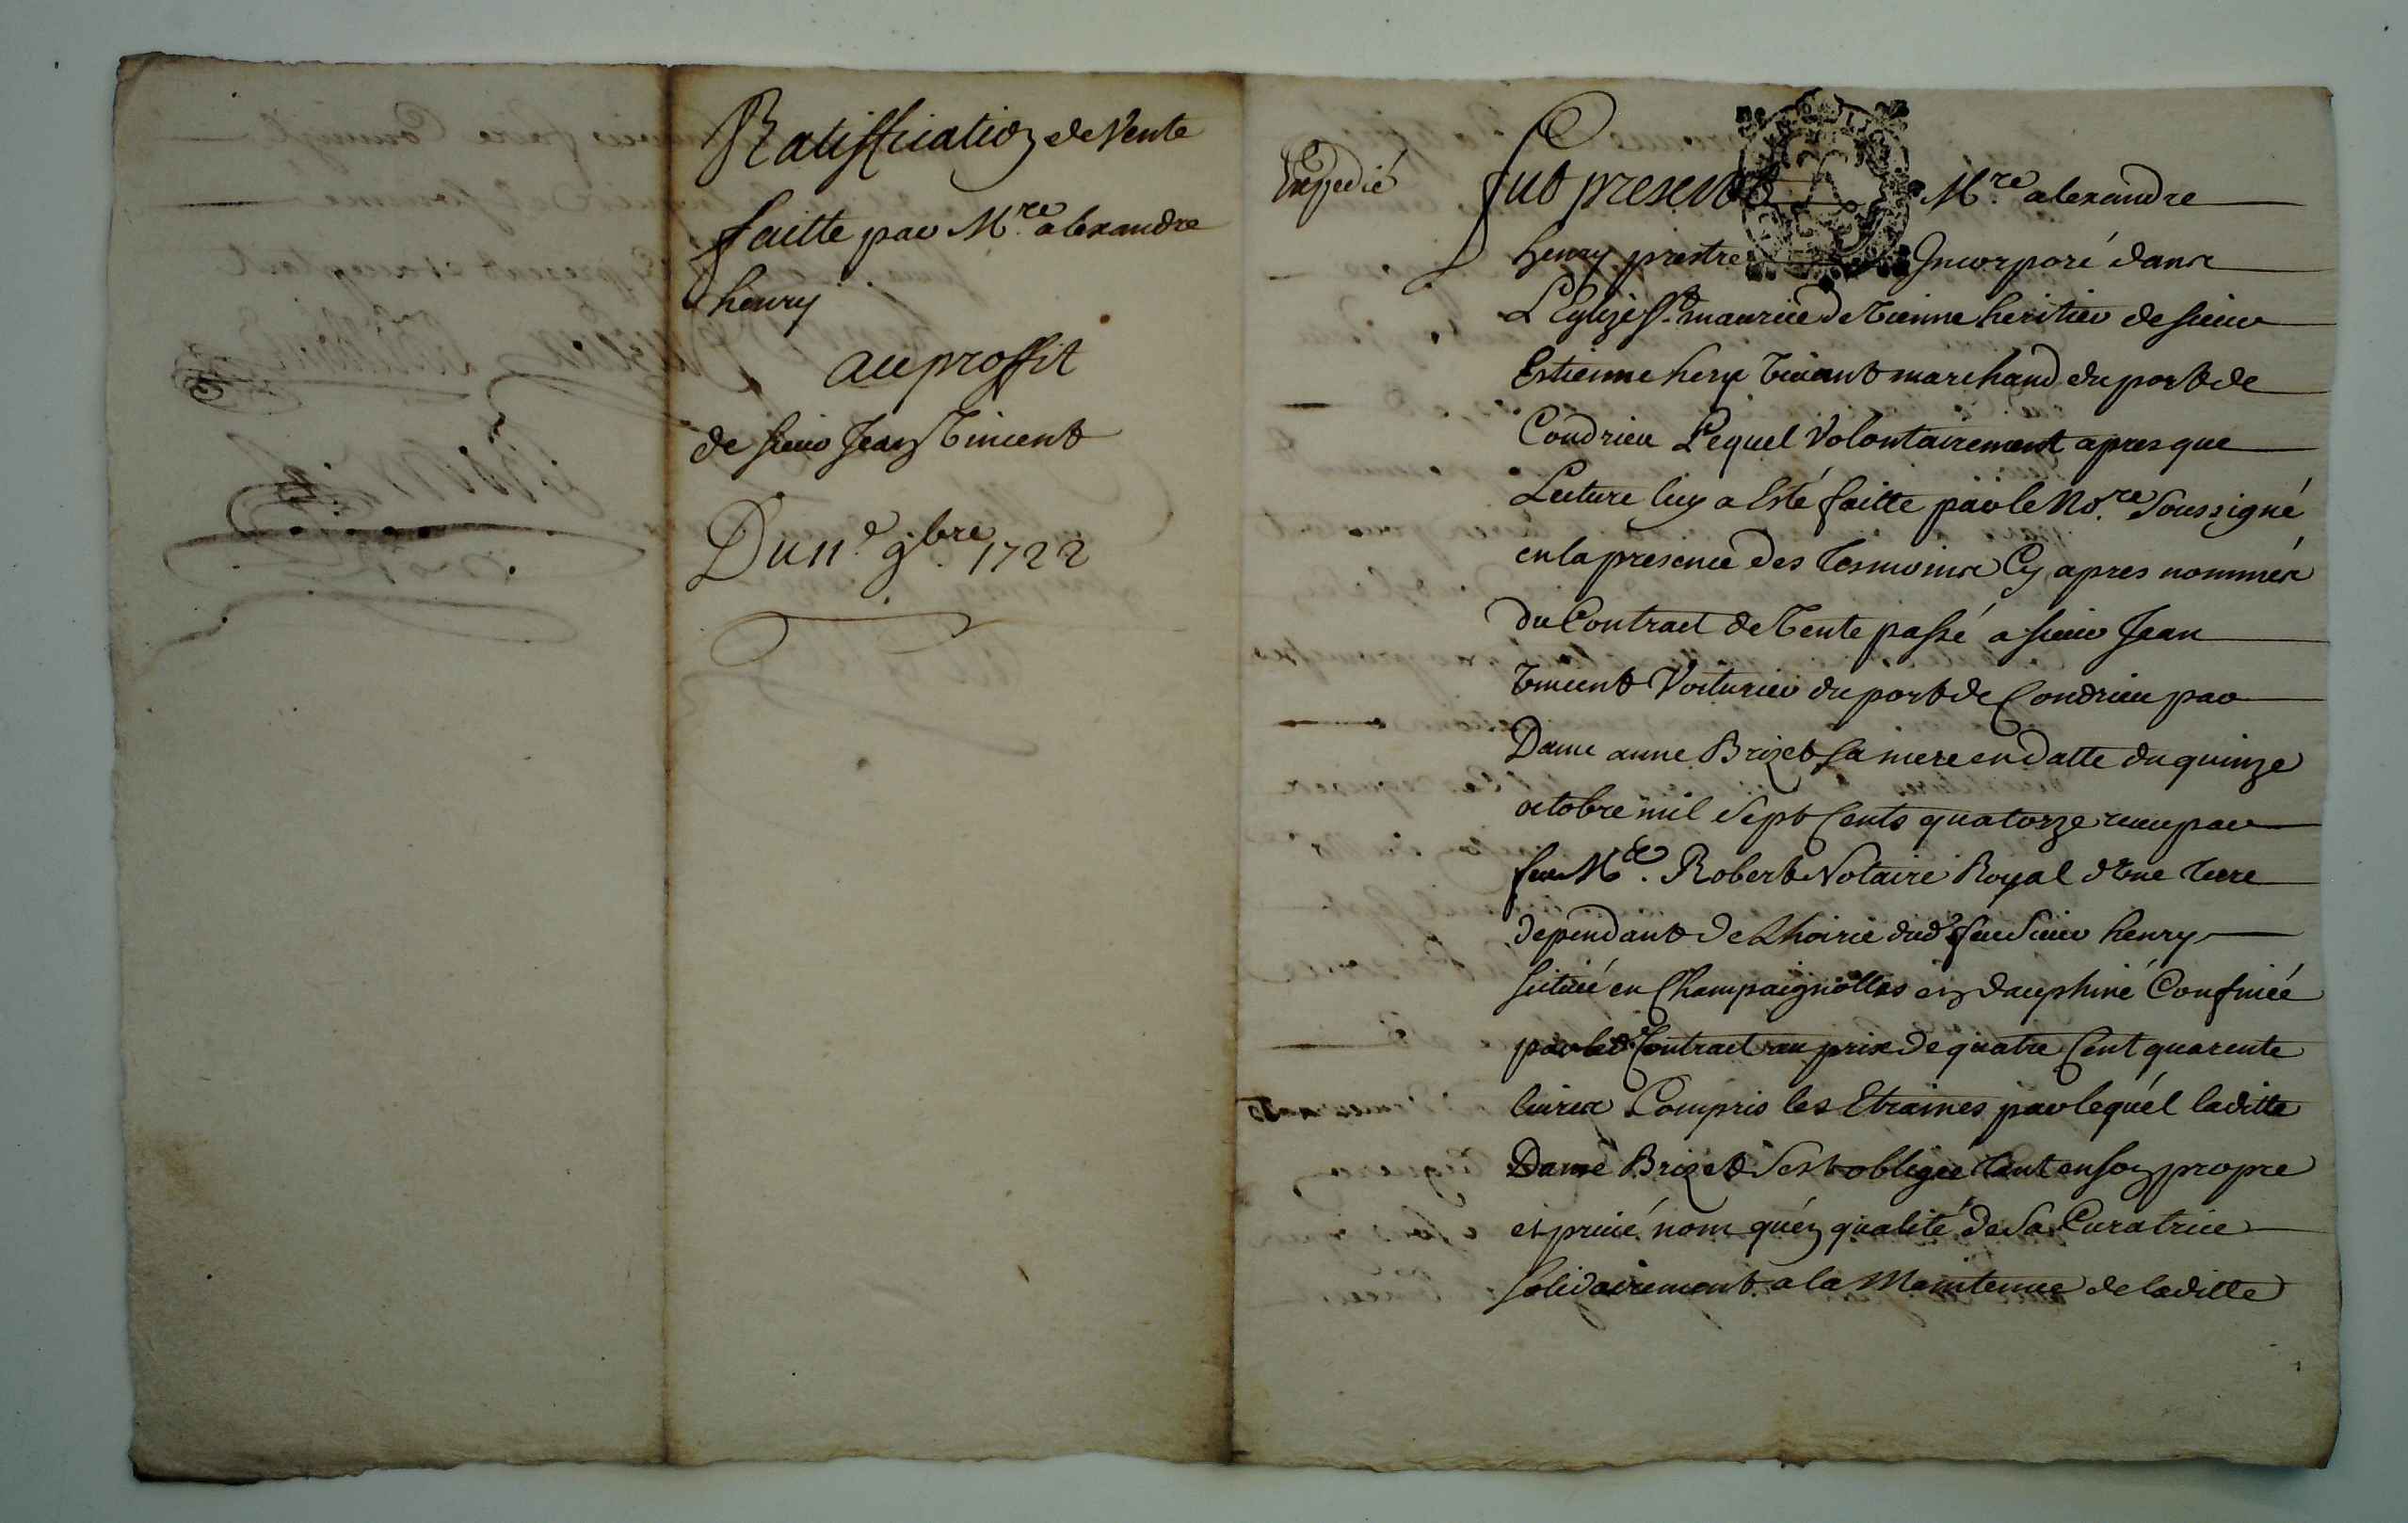 Ratiffication de Vente
faitte par Mre alexandre
henry
au proffit
de sieur Jean Vincent
Du 11e 9bre 1722
Expedié
fut present Mre alexandre
henry prestre Incorporé dans
L'Eglize St maurice de Vienne heritier de sieur
Estienne henry vivant marchand du port de
Condrieu Lequel Volontairement apres que
Lecture luy a Esté faitte par le Nore Soussigné
en la presence des Tesmoins Cy apres nommés
du Contract de Vente passé a sieur Jean
Vincent Voiturier du port de Condrieu par
Dame anne Brizet sa mere en datte du quinze
octobre mil Sept Cents quatorze receu par
feu Me Robert Notaire Royal d'Vne terre
dependant de Lhoirie dud feu Sieur henry
scituée en Champaignolles en dauphiné Confinée
par led Contract au prix de quatre Cent quarente
livres Compris les Etraines par lequel laditte
Dame Brizet s'est obligée tant en son propre
et privé nom qu'en qualité de Sa Curatrice
solidairement a la Maintenue de laditte